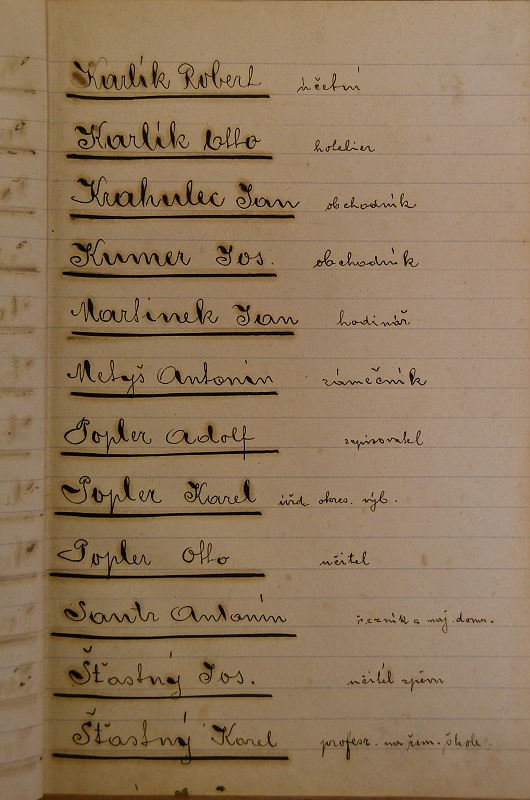 Karlík Robert účetní
Karlík Otto hotelier
Krahulec Jan obchodník
Kumer Jos. obchodník
Martinek Jan hodinář
Metyš Antonín zámečník
Popler Adolf zapisovatel
Popler Karel úřed. okres. výb.
Popler Otto učitel
Santr Antonín řezník a maj. domu.
Šťastný Jos. učitel zpěvu
Šťastný Karel profesr. na řem. škole